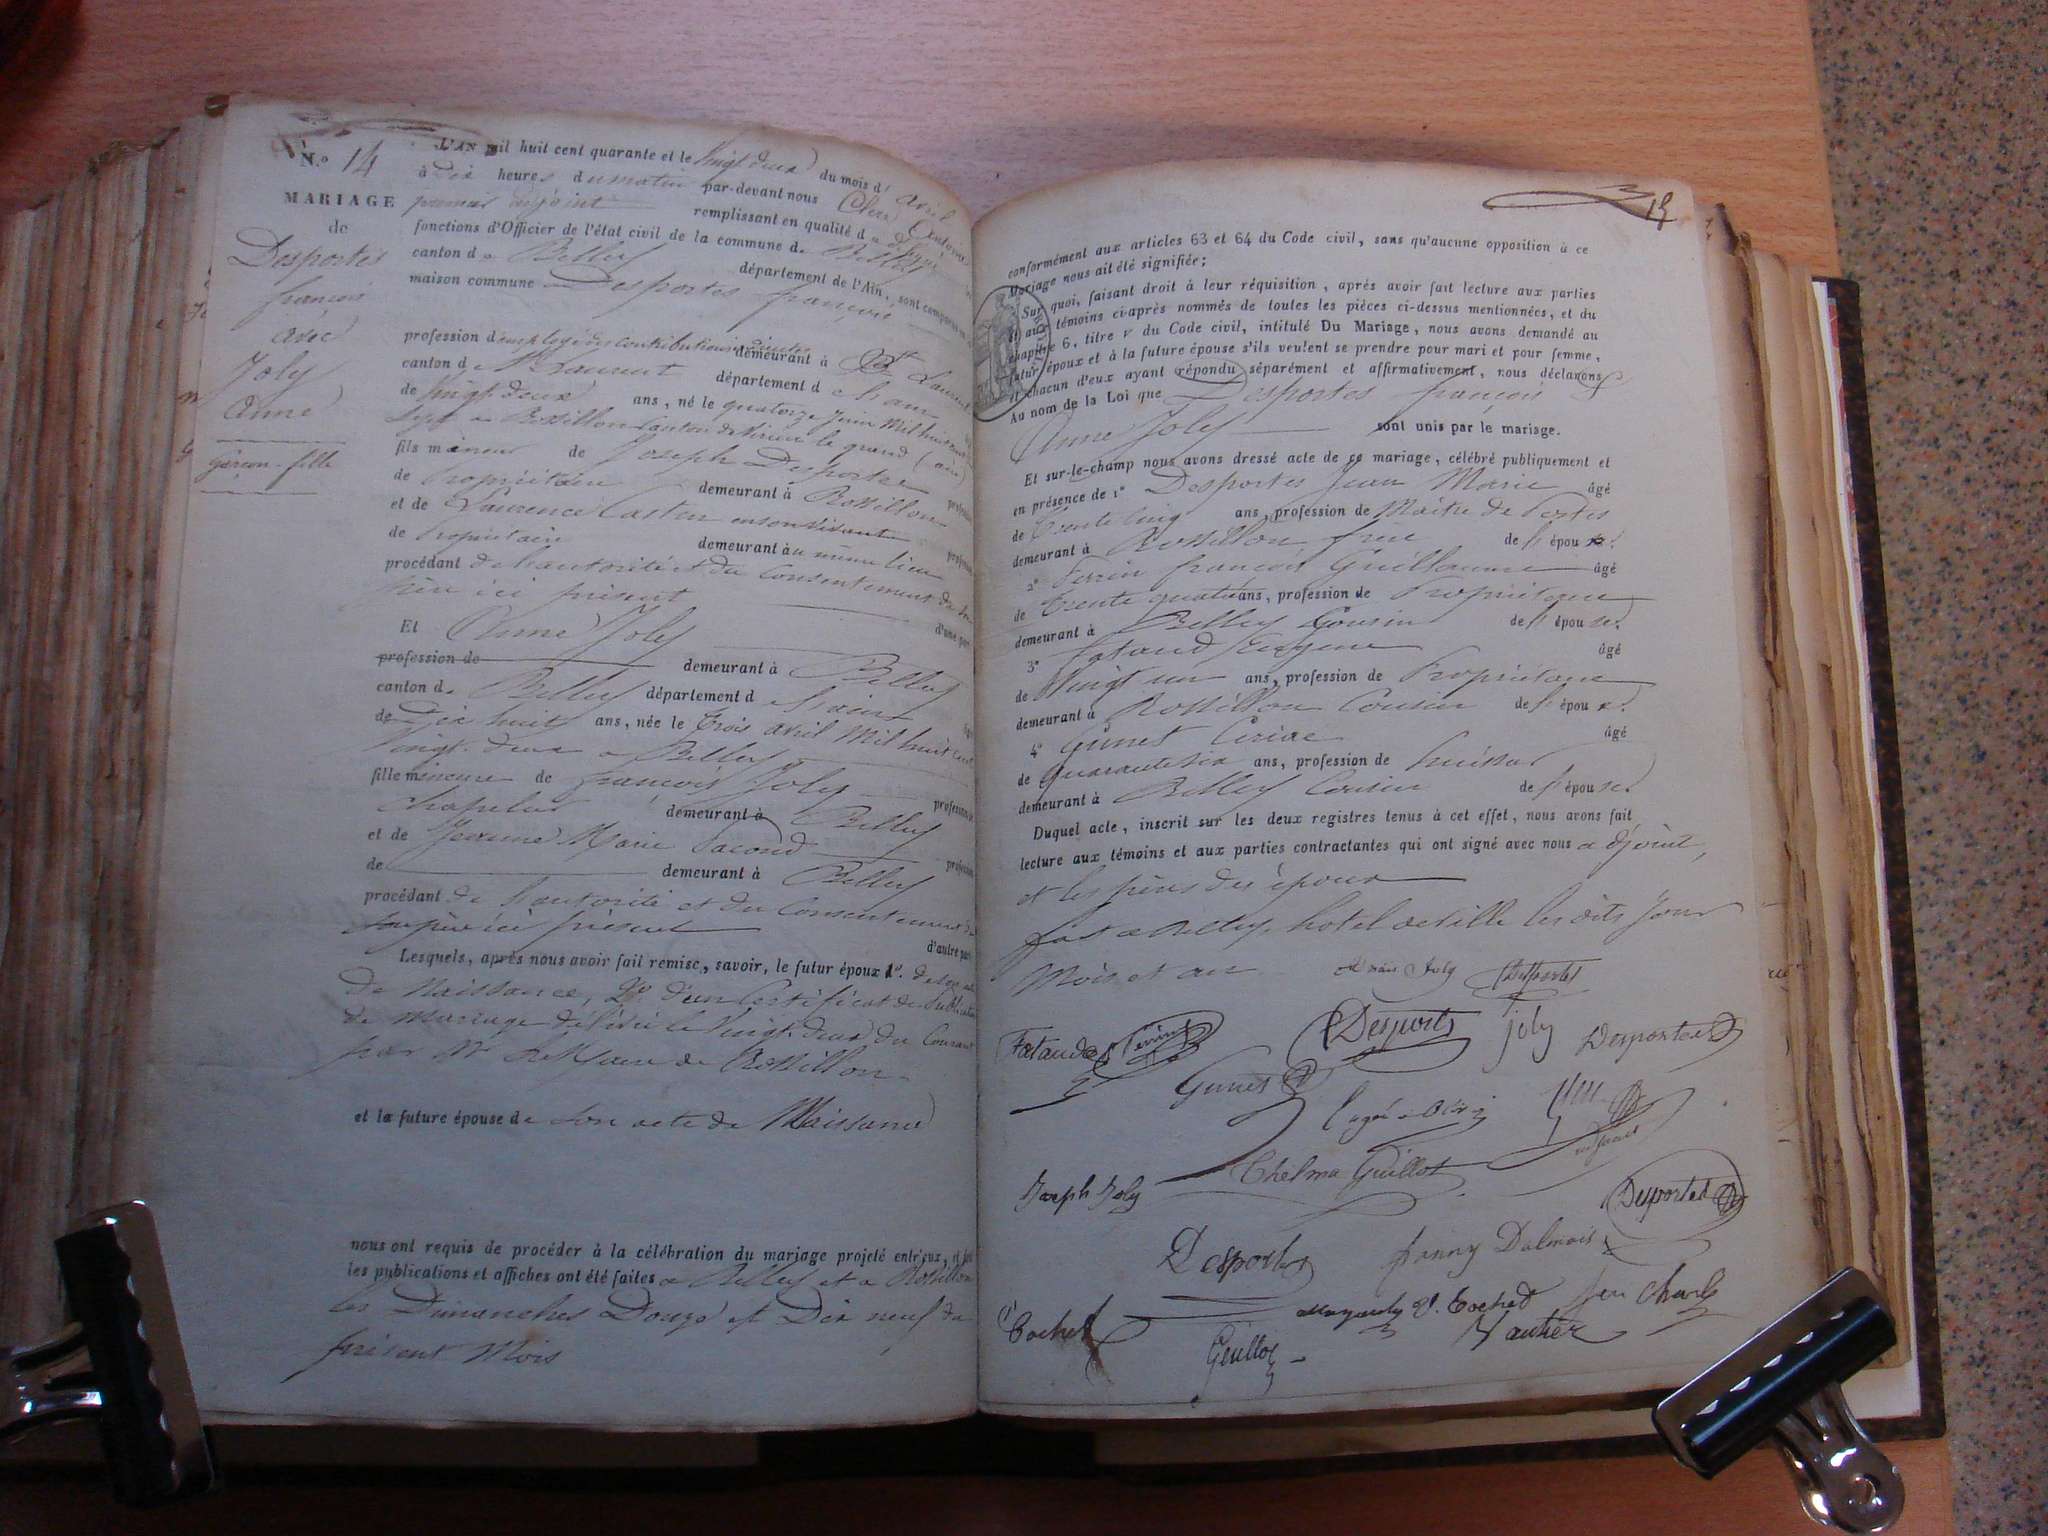 N.o 14
MARIAGE
de
Desportes
françois
avec
Joly
Anne
Garçon - fille
L'AN mil huit cent quarante et le vingt deux du mois d'avril
à dix heures du matin par-devant nous Clerc Anthelme
premier adjoint remplissant en qualité de
fonctions d'Officier de l'état civil de la commune de Belley
canton de Belley département de l'Ain, sont comparus en la
maison commune Desportes françois
profession d'employé des contributions directes demeurant à St Laurent
canton de St Laurent département de l'ain
de vingt deux ans, né le quatorze Juin Mil huit cent
sept à Rossillon canton de Virieu le grand (ain)
fils mineur de Joseph Desportes profession
de Propriétaire demeurant à Rossillon
et de Laurence Caston en son vivant profession
de Propriétaire demeurant au même lieu
procédant de l'autorité et du Consentement de son
père ici présent
d'une part
Et Anne Joly
profession de demeurant à Belley
canton de Belley département de l'ain
de Dix huit ans, née le trois avril Mil huit cent
vingt-deux à Belley
fille mineure de françois Joly profession de
chapelier demeurant à Belley
et de Jeanne Marie Pacoud profession
de demeurant à Belley
procédant de l'autorité et du Consentement de
son père ici présent
d'autre part
Lesquels, après nous avoir fait remise, savoir, le futur époux 1o. de son acte
de Naissance, 2o. d'un Certificat de Publication
de Mariage délivré le Vingt-deux du Courant
par Mr le Maire de Rossillon
et la future épouse de son acte de Naissance
nous ont requis de procéder à la célébration du mariage projeté entr'eux, et dont
les publications et affiches ont été faites à Belley et à Rossillon
les Dimanches Douze et Dix neuf du
présent Mois
15
conformément aux articles 63 et 64 du Code civil, sans qu'aucune opposition à ce
Mariage nous ait été signifiée;
Sur quoi, faisant droit à leur réquisition, après avoir fait lecture aux parties
et aux témoins ci-après nommés de toutes les pièces ci-dessus mentionnées, et du
chapitre 6, titre v du Code civil, intitulé Du Mariage, nous avons demandé au
futur époux et à la future épouse s'ils veulent se prendre pour mari et pour femme,
et chacun d'eux ayant répondu séparément et affirmativement, nous déclarons
Au nom de la Loi que Desportes françois &
Anne Joly sont unis par le mariage.
Et sur-le-champ nous avons dressé acte de ce mariage, célébré publiquement et
en présence de 1o Desportes Jean Marie âgé
de trente cinq ans, profession de Maître de Postes
demeurant à Rossillon frère de l'époux.
2o Perrin françois Guillaume âgé
de trente quatre ans, profession de Propriétaire
demeurant à Belley Cousin de l'épouse.
3o Fataud Eugene âgé
de Vingt un ans, profession de Propriétaire
demeurant à Rossillon Cousin de l'époux.
4o Gunet Ceriac âgé
de quarante six ans, profession de huissier
demeurant à Belley Cousin de l'épouse.
Duquel acte, inscrit sur les deux registres tenus à cet effet, nous avons fait
lecture aux témoins et aux parties contractantes qui ont signé avec nous adjoint,
et les pères des époux
fait à Belley, hotel de ville les dits Jour
Mois et an
Joly Desportes
Fataud Perrin Desportes joly Desportes
Gunet
Thelma Guillot
Joseph Joly Desportes
Desportes fanny Dalmais
Cochet Cochet
Guillot Vautier